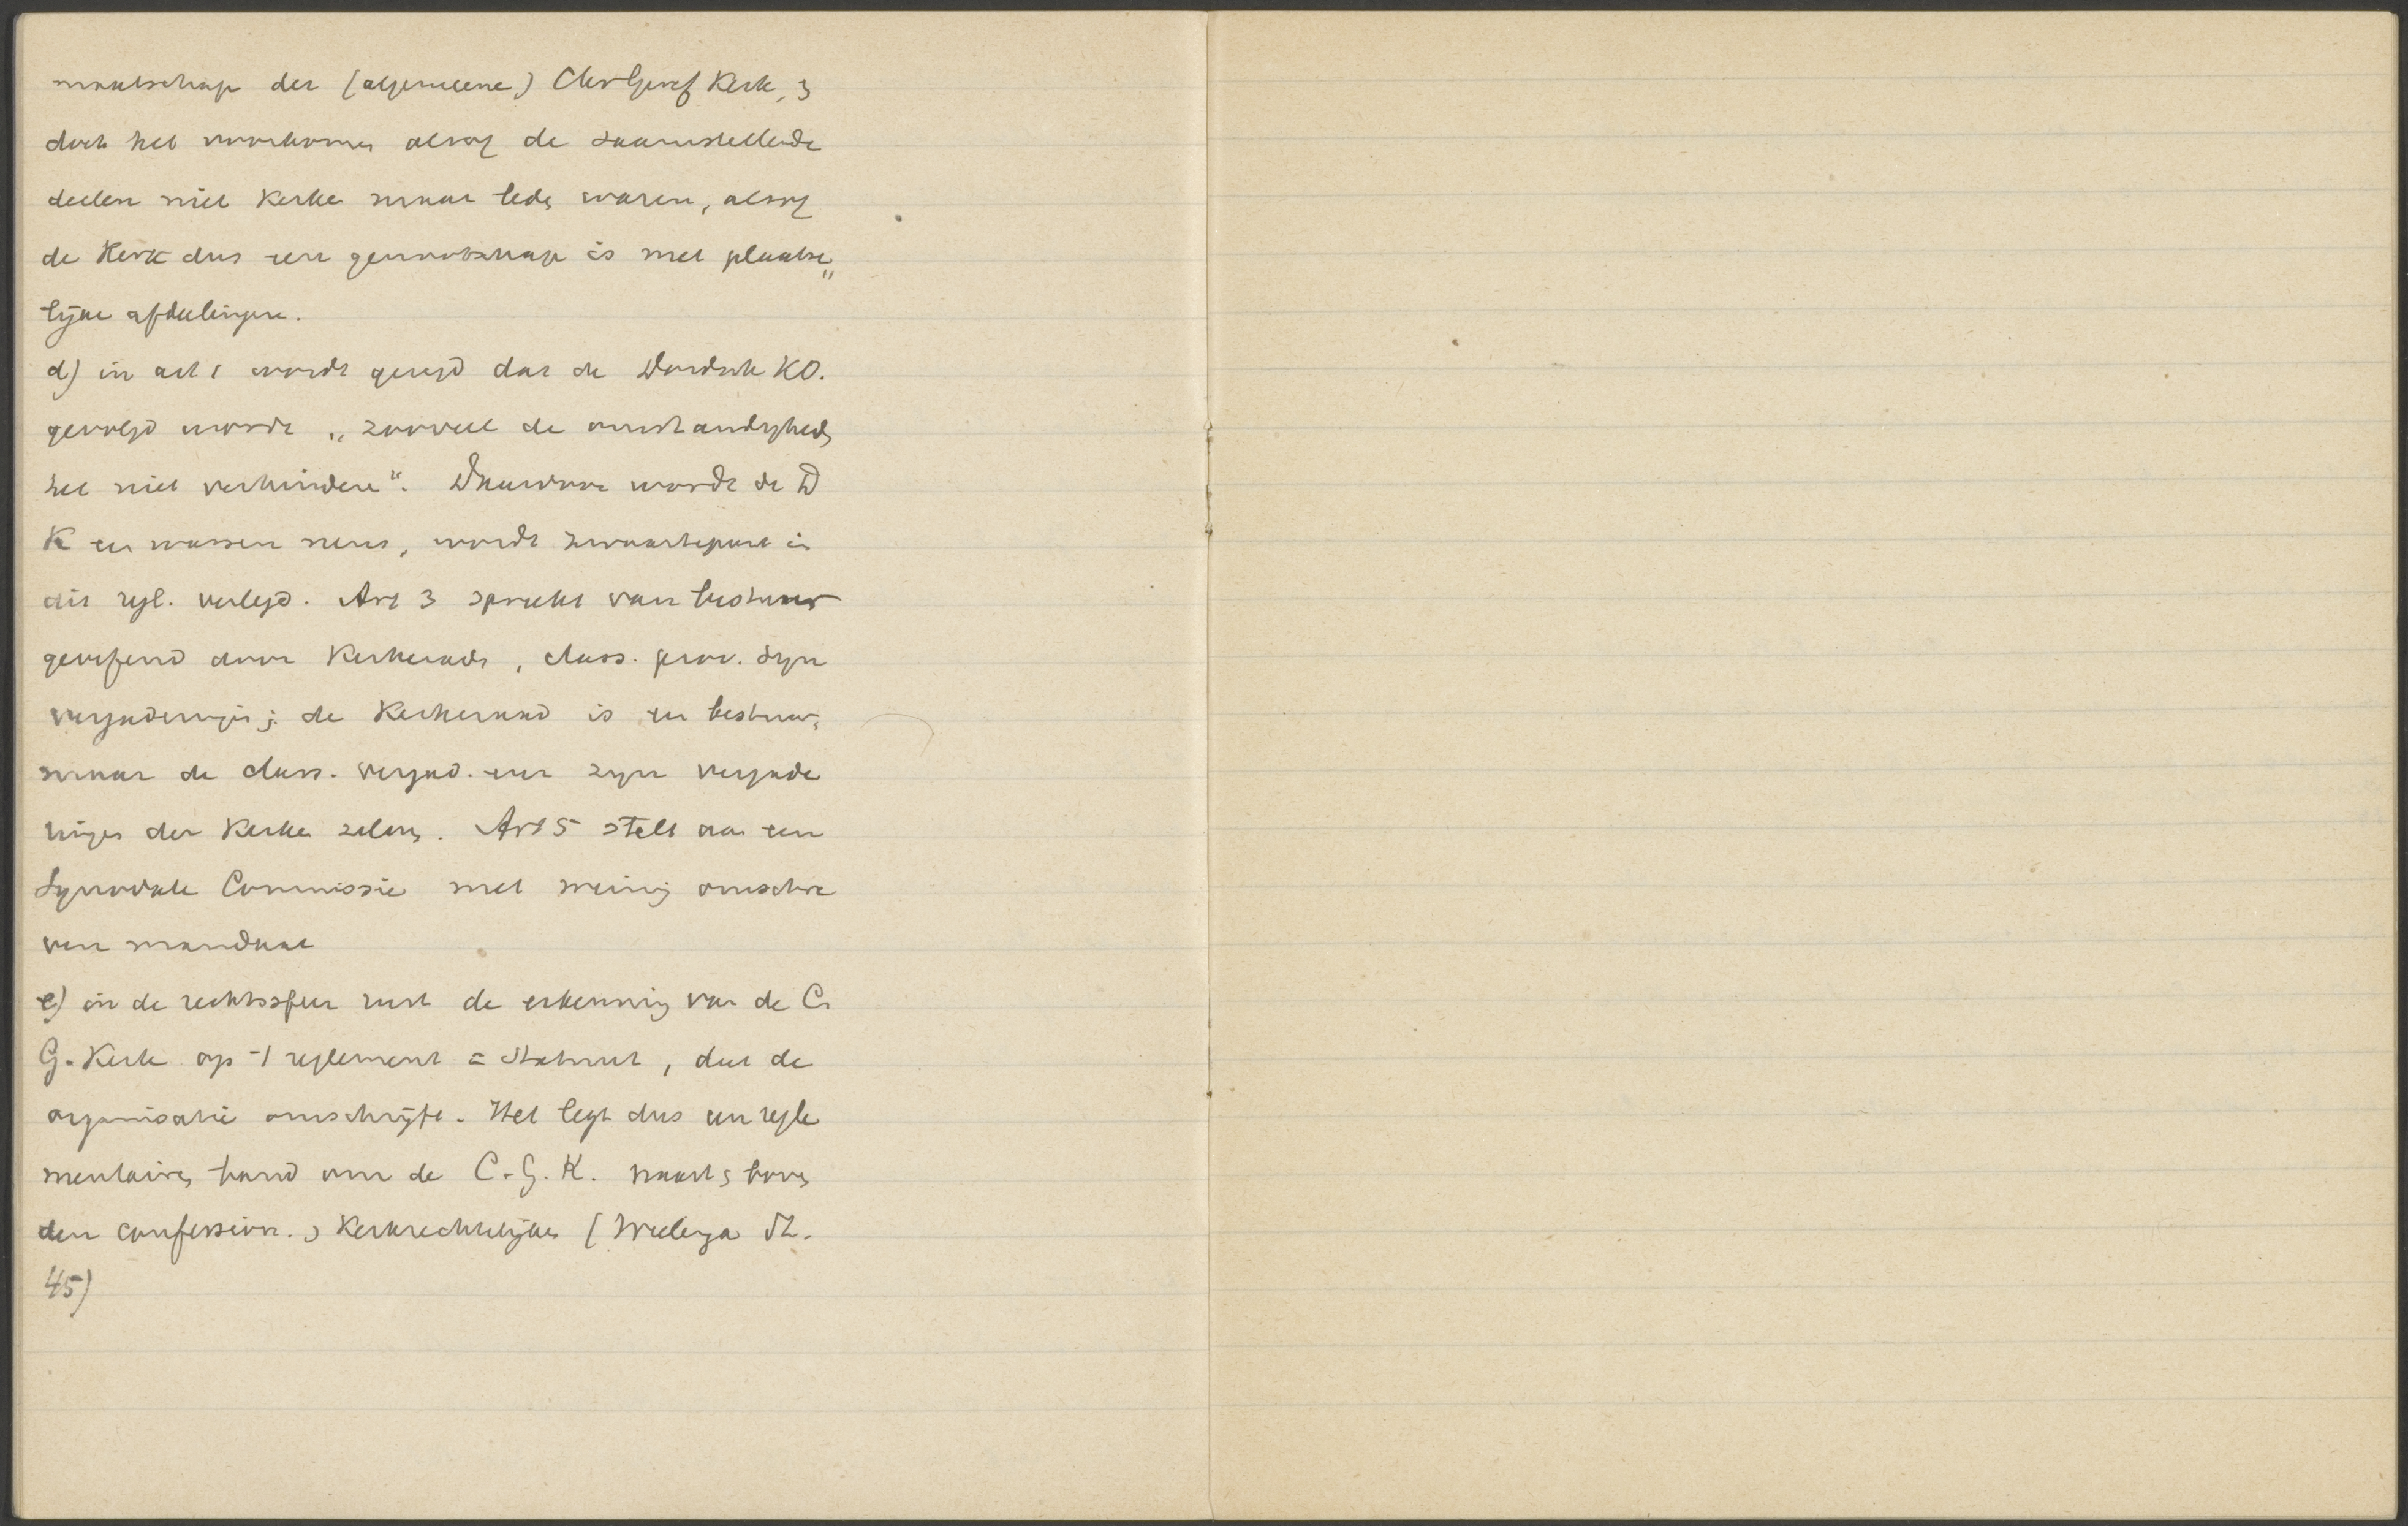 maatschap der (algemeene) ChrGeref Kerk, 
doet het voorkomen alsof de saamstellende
deelen niet Kerke maar lede waren, alsof
de Kerk dus een genootschap is met plaatse„
lijke afdeelingen.
d) in art 1 wordt gezegd dat de Dordsche KO.
gevolgd wordt „zooveel de omstandighede
het niet verhindere". Daardoor wordt de D
K een wassen neus, wordt zwaartepunt in
dit regl. verlegd. Art 3 spreekt van bestuur
geoefend door Kerkerade, class. prov. Syn
vergaderingen; de Kerkeraad is een bestuur,
maar de class. vergad. enz zijn vergade
ringen der Kerke zelve. Art 5 stelt aan een
Synodale Commissie met weinig omschre
ven mandaat
e) in de rechtssfeer rust de erkenning van de C
G. Kerk op 't reglement = Statuut, dat de
organisatie omschrijft. Het legt dus een regle
mentaire band om de C. G. K. naast boven
den confession. Kerkrechtelijke (Wielenga
45)